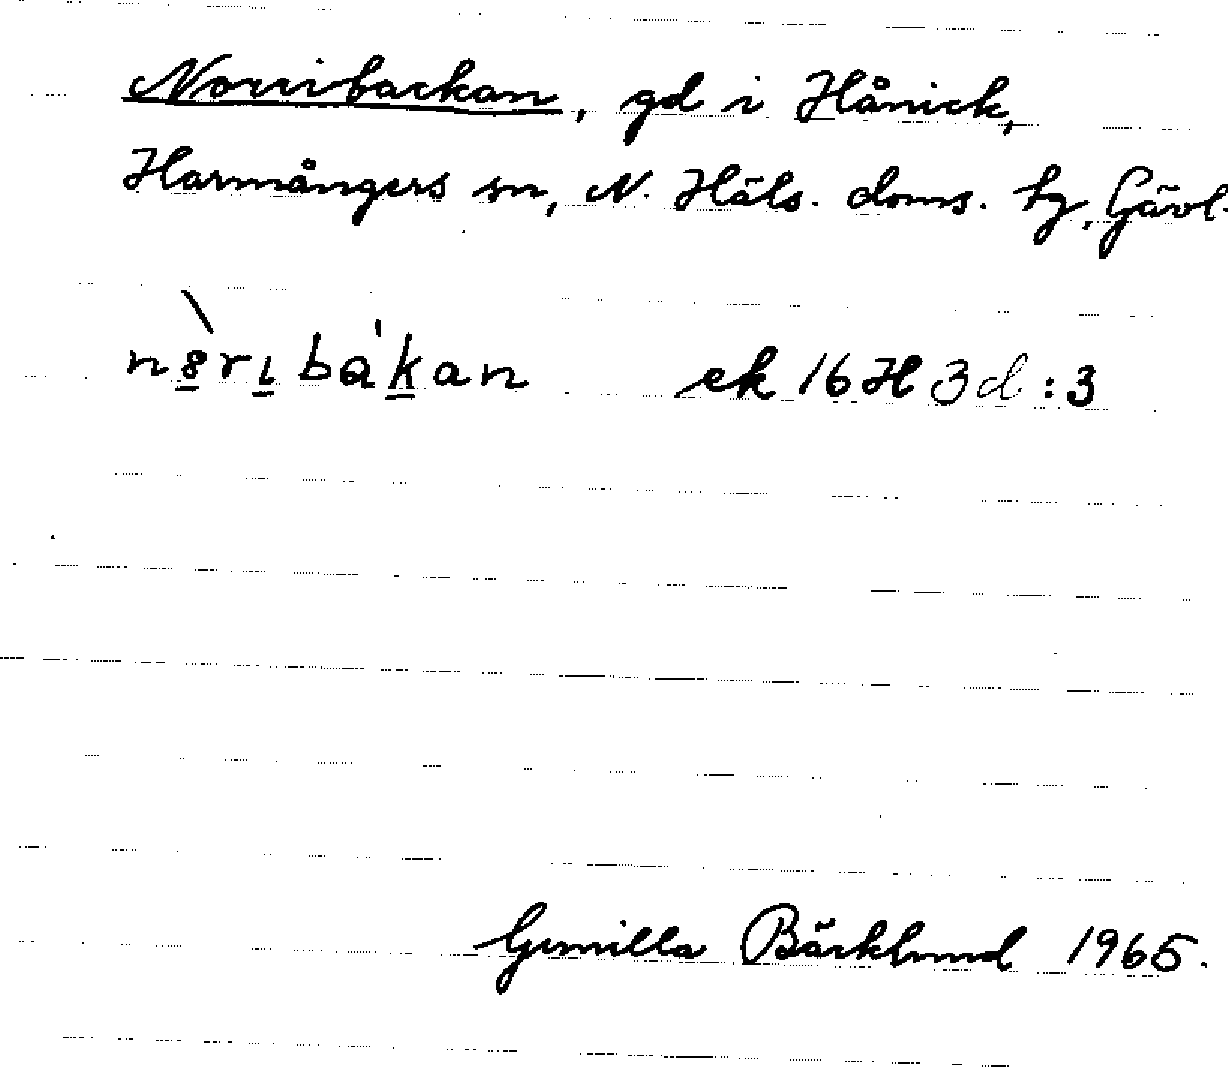 Norribackan, gd i Hånick,
Harmångers sn, N. Häls. doms. hg, Gävl.
nò̱rı̱ báḵan ek 16 H 3d:3
Gunilla Bärklund 1965.